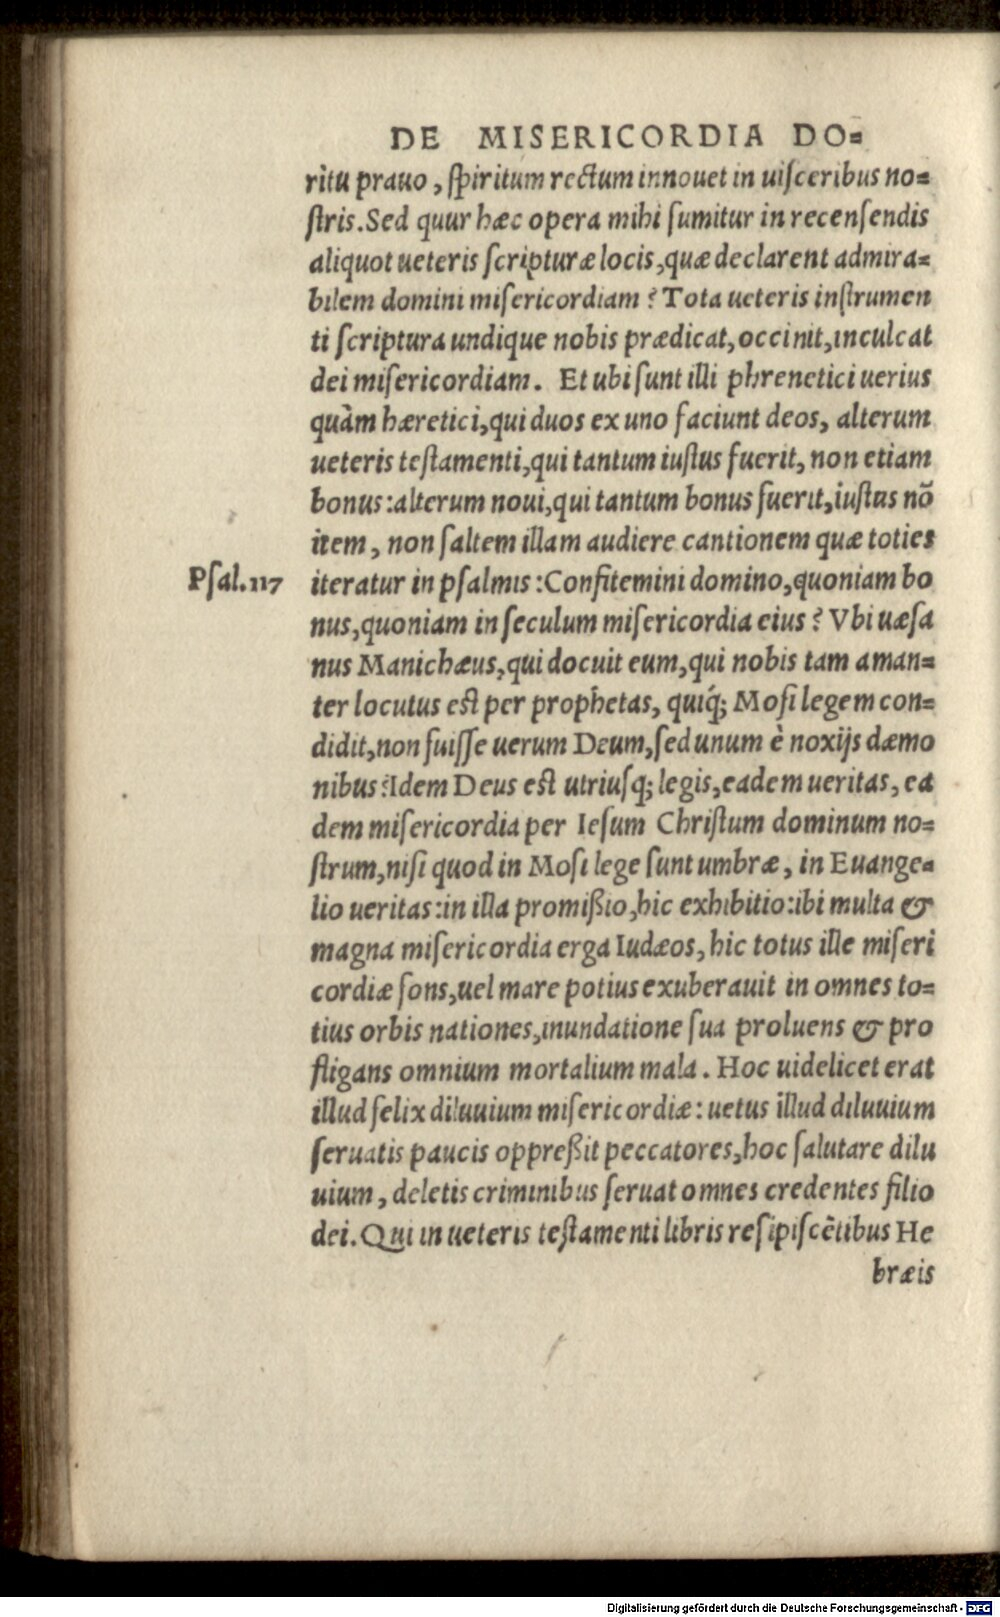 DE MISERICORDIA DO=
ritu prauo, spiritum rectum innouet in uisceribus no=
stris. Sed quur hæc opera mihi sumitur in recensendis
aliquot ueteris scripturæ locis, quæ declarent admira=
bilem domini misericordiam? Tota ueteris instrumen
ti scriptura undique nobis prædicat, occinit, inculcat
dei misericordiam. Et ubi sunt illi phrenetici uerius
quàm hæretici, qui duos ex uno faciunt deos, alterum
ueteris testamenti, qui tantum iustus fuerit, non etiam
bonus: alterum noui, qui tantum bonus fuerit, iustus nõ
item, non saltem illam audiere cantionem quæ toties
Psal.117 iteratur in psalmis: Confitemini domino, quoniam bo
nus, quoniam in seculum misericordia eius? Vbi uæsa
nus Manichæus, qui docuit eum, qui nobis tam aman=
ter locutus est per prophetas, quiq́; Mosi legem con=
didit, non fuisse uerum Deum, sed unum è noxijs dæmo
nibus? Idem Deus est utriusq; legis, eadem ueritas, ea
dem misericordia per Iesum Christum dominum no=
strum, nisi quod in Mosi lege sunt umbræ, in Euange=
lio ueritas: in illa promißio, hic exhibitio: ibi multa &
magna misericordia erga Iudæos, hic totus ille miseri
cordiæ fons, uel mare potius exuberauit in omnes to=
tius orbis nationes, inundatione sua proluens & pro
fligans omnium mortalium mala. Hoc uidelicet erat
illud felix diluuium misericordiæ: uetus illud diluuium
seruatis paucis oppreßit peccatores, hoc salutare dilu
uium, deletis criminibus seruat omnes credentes filio
dei. Qui in ueteris testamenti libris resipiscẽtibus He
bræis
Digitalisierung gefördert durch die Deutsche Forschungsgemeinschaft - DFG